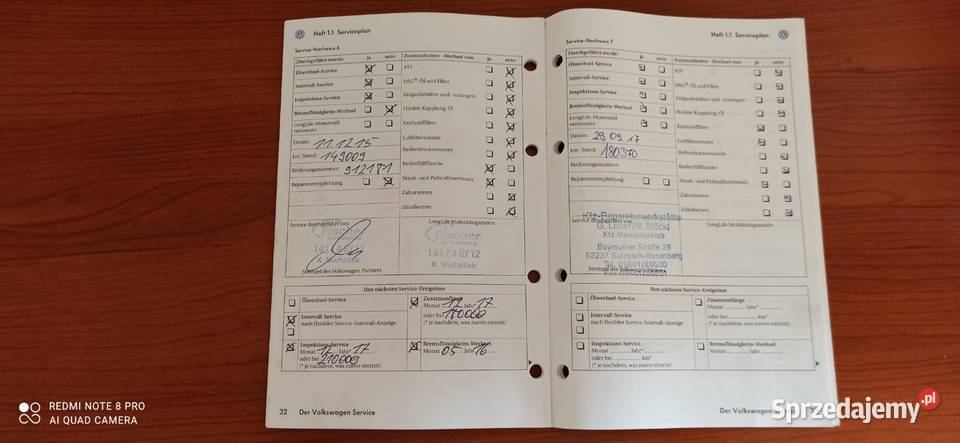 Heft 1.1 Serviceplan
Service-Nachweis 6
Durchgeführt wurde: ja nein
Ölwechsel-Service
Intervall-Service
Inspektions-Service
Bremsflüssigkeits-Wechsel
LongLife-Motorenöl
verwendet
Datum: 11.12.15
km-Stand: 149009
Rechnungsnummer: 912181
Reparaturempfehlung
Zusatzarbeiten - Wechsel von: ja nein
ATF
DSG®-Öl und Filter
Haldex-Kupplung-Öl
Kraftstofffilter
Luftfiltereinsatz
Reifenfüllflasche
Staub- und Pollenfiltereinsatz
Zahnriemen
Zündkerzen
Service durchgeführt von:
Fischer
141/46712
K. Michallok
Stempel des Volkswagen Partners
LongLife Mobilitätsgarantie:
Fischer
141/46712
K. Michallok
Ihre nächsten Service-Ereignisse
Ölwechsel-Service
Intervall-Service
nach flexibler Service-Intervall-Anzeige
Inspektions-Service
Monat 12 Jahr* 17
oder bei 210000
(* je nachdem, was zuerst eintritt)
Zusatzumfänge
Monat 12 Jahr* 17
oder bei 180000
(* je nachdem, was zuerst eintritt)
Bremsflüssigkeits-Wechsel
Monat 05 Jahr 16
32 Der Volkswagen Service
Heft 1.1 Serviceplan
Service-Nachweis 7
Durchgeführt wurde: ja nein
Ölwechsel-Service
Intervall-Service
Inspektions-Service
Bremsflüssigkeits-Wechsel
LongLife-Motorenöl
verwendet
Datum: 29 09. 17
km-Stand: 180370
Rechnungsnummer:
Reparaturempfehlung
Zusatzarbeiten - Wechsel von: ja nein
ATF
DSG®-Öl und Filter
Haldex-Kupplung-Öl
Kraftstofffilter
Luftfiltereinsatz
Reifenfüllflasche
Staub- und Pollenfiltereinsatz
Zahnriemen
Zündkerzen
Kfz-Reparaturwerkstätte
Service durchgeführt von:
Kfz-Meisterbetrieb
Bayreuther Straße 26
92237 Sulzbach-Rosenberg
Stempel des Volkswagen Partners
LongLife Mobilitätsgarantie:
Ihre nächsten Service-Ereignisse
Ölwechsel-Service
Intervall-Service
nach flexibler Service-Intervall-Anzeige
Inspektions-Service
Monat Jahr*
oder bei km*
(* je nachdem, was zuerst eintritt)
Zusatzumfänge
Monat Jahr*
oder bei km*
(* je nachdem, was zuerst eintritt)
Bremsflüssigkeits-Wechsel
Monat Jahr
Der Volkswagen
REDMI NOTE 8 PRO
AI QUAD CAMERA
Sprzedajemy.pl